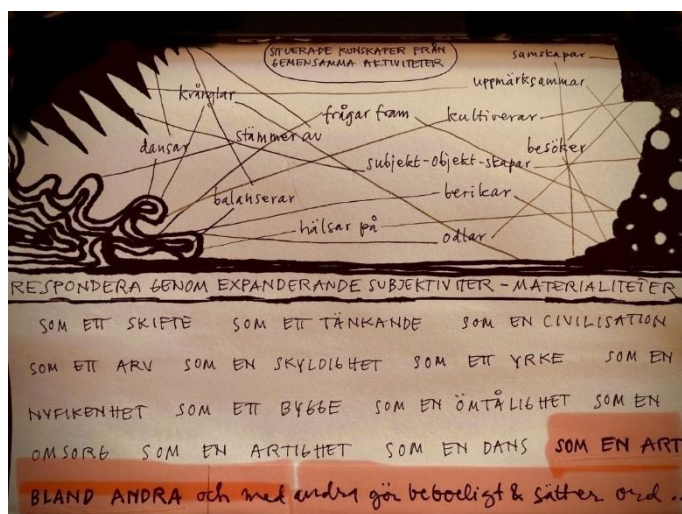 SITUERADE KUNSKAPER FRÅN
GEMENSAMMA AKTIVITETER
samskapar
uppmärksammar
krånglar
frågar fram
kultiverar
stämmer av
dansar
besöker
subjekt-objekt-skapar
balanserar
berikar
hälsar på
odlar
RESPONDERA GENOM EXPANDERANDE SUBJEKTIVITETER - MATERIALITETER
SOM ETT SKIFTE SOM ETT TÄNKANDE SOM EN CIVILISATION
SOM ETT ARV SOM EN SKYLDIGHET SOM ETT YRKE SOM EN
NYFIKENHET SOM ETT BYGGE SOM EN ÖMTÅLIGHET SOM EN
OMSORG SOM EN ARTIGHET SOM EN DANS SOM EN ART
BLAND ANDRA och med andra gör beboeligt & sätter ord ..